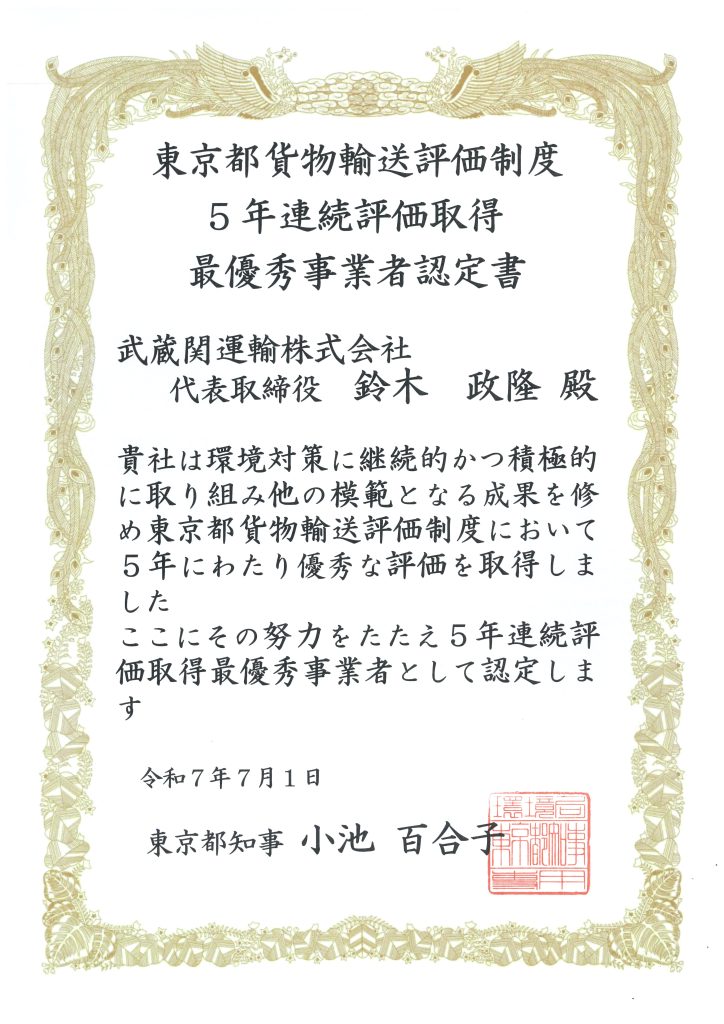 東京都貨物輸送評価制度
５年連続評価取得
最優秀事業者認定書
武蔵関運輸株式会社
代表取締役　鈴木　政隆 殿
貴社は環境対策に継続的かつ積極的
に取り組み他の模範となる成果を修
め東京都貨物輸送評価制度において
５年にわたり優秀な評価を取得しま
した
ここにその努力をたたえ５年連続評
価取得最優秀事業者として認定しま
す
令和７年７月１日
東京都知事 小池 百合子
環境局
東京都知事